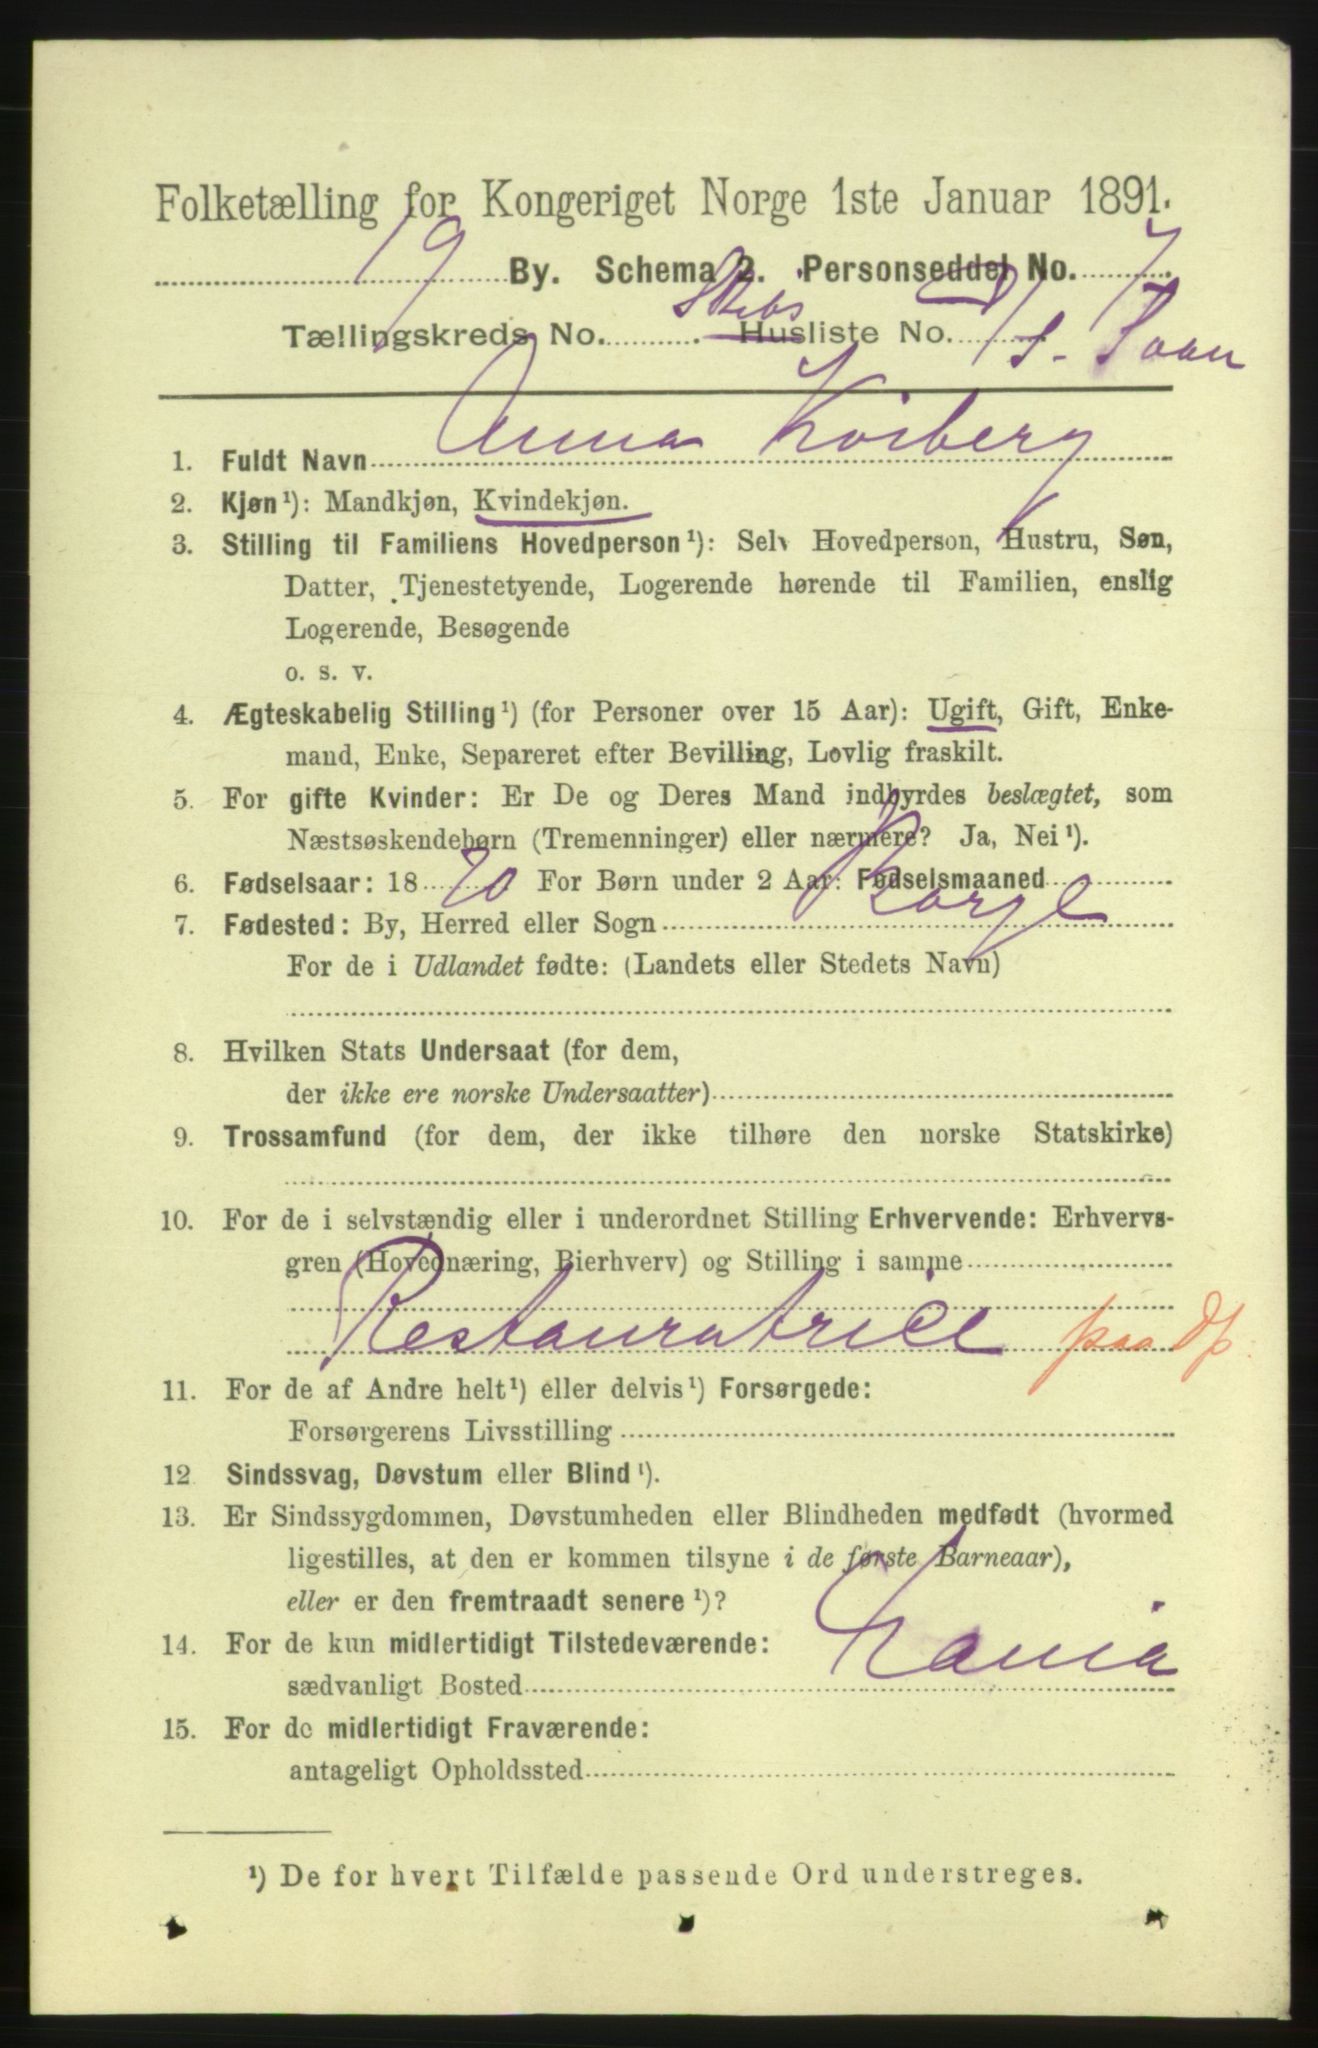 Folketælling for Kongeriget Norge 1ste Januar 1891.
19 By. Schema 2. Personseddel No. 7
Tællingskreds No. Skibs Husliste No.
1. Fuldt Navn Anna Koiberg
2. Kjøn¹): Mandkjøn, Kvindekjøn.
3. Stilling til Familiens Hovedperson¹): Selv Hovedperson, Hustru, Søn,
Datter, Tjenestetyende, Logerende hørende til Familien, enslig
Logerende, Besøgende
o. s. v.
4. Ægteskabelig Stilling¹) (for Personer over 15 Aar): Ugift, Gift, Enke-
mand, Enke, Separeret efter Bevilling, Lovlig fraskilt.
5. For gifte Kvinder: Er De og Deres Mand indbyrdes beslægtet, som
Næstsøskendebørn (Tremenninger) eller nærmere? Ja, Nei¹).
6. Fødselsaar: 18 70 For Børn under 2 Aar: Fødselsmaaned
7. Fødested: By, Herred eller Sogn Borge
For de i Udlandet fødte: (Landets eller Stedets Navn)
8. Hvilken Stats Undersaat (for dem,
der ikke ere norske Undersaatter)
9. Trossamfund (for dem, der ikke tilhøre den norske Statskirke)
10. For de i selvstændig eller i underordnet Stilling Erhvervende: Erhvervs-
gren (Hovednæring, Bierhverv) og Stilling i samme
Restauratrice paa Dp.
11. For de af Andre helt¹) eller delvis¹) Forsørgede:
Forsørgerens Livsstilling
12 Sindssvag, Døvstum eller Blind¹).
13. Er Sindssygdommen, Døvstumheden eller Blindheden medfødt (hvormed
ligestilles, at den er kommen tilsyne i de første Barneaar),
eller er den fremtraadt senere¹)?
14. For de kun midlertidigt Tilstedeværende:
sædvanligt Bosted Xania
15. For de midlertidigt Fraværende:
antageligt Opholdssted
¹) De for hvert Tilfælde passende Ord understreges.